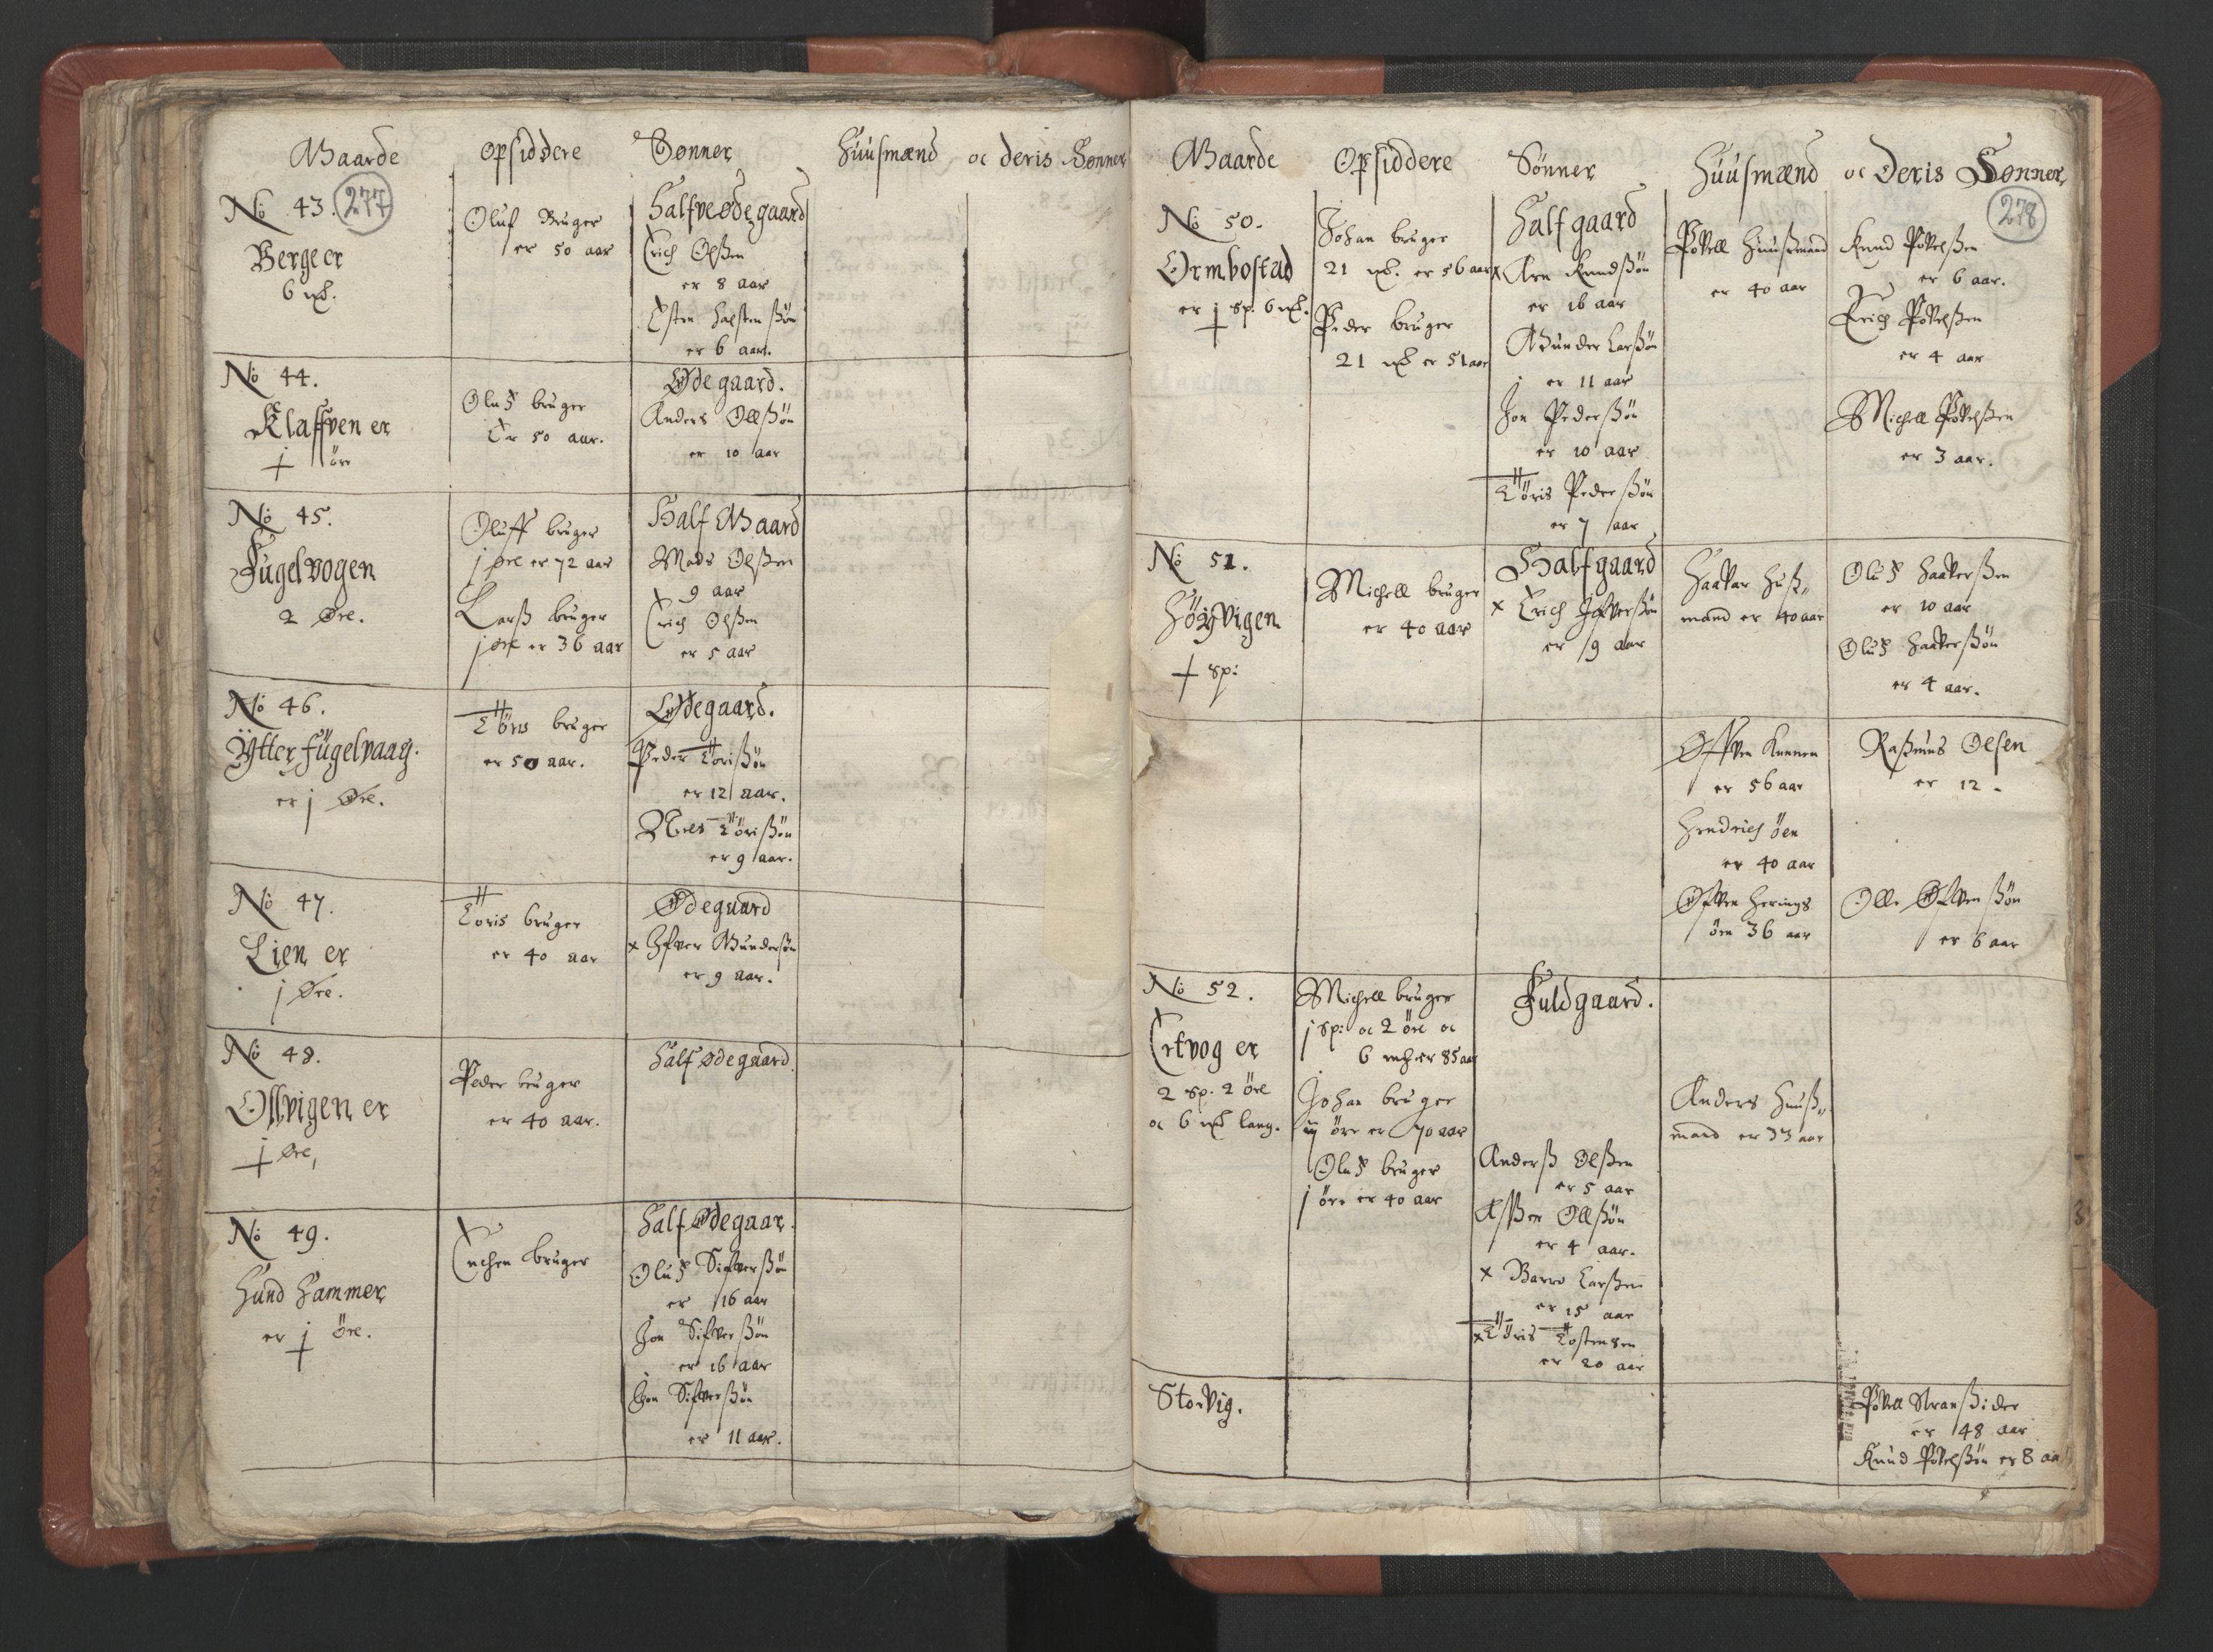 Gaarde opsiddere Sønner Huusmænd oc deris Sønner
No 43. 277
Berge er
6 mk.
Oluf Bruger
er 50 aar
Halfve Ødegaard
Erich Olßen
er 8 aar
Esten Halsten ßøn
er 6 aar.
No 44.
Klaffven er
j öre
Oluf bruger
Er 50 aar.
Ødegaard.
Anders Ollßøn
er 10 aar
No 45.
Fugelvogen
2 Øre.
Oluff bruger
j øre er 72 aar
Larß bruger
j øre er 36 aar
Half Gaard
Mads Olßen
9 aar
Erich Olßen
er 5 aar
No 46.
Ytter fügelvaag.
er j Øre.
Töris bruger
er 50 aar.
Ødegaard.
Peder Torißøn
er 12 aar.
Töri ßøn
er 9 aar.
No 47.
Lien er
j Øre.
Toris bruger
er 40 aar
Ødegaard
x Ifver Gundersøn
er 9 aar.
No 48.
Ollvigen er
j øre,
Peder bruger
er 40 aar.
Half Ødegaard.
No 49.
Hund Hammer
er j öre.
Enchen bruger
Half Ødegaar.
Oluf Sifver ßøn
er 16 aar
Jon Sifver ßøn
er 16 aar
Jon Sifver ßøn
er 11 aar.
Gaarde Opsiddere Sönner Huusmænd oc Deris Sønner
278
No 50.
Ormbostad
er j sp. 6 mk.
Johan bruger
21 mk. er 56 aar
Peder bruger
21 mk er 51 aar
Half gaard
x Arn Knudßøn
er 16 aar
Gunder Larßøn
er 11 aar
Jon Peder ßøn
er 10 aar
Töris Peder ßøn
er 7 aar
Povell Huußmand
er 40 aar
Knud Povelßen
er 6 aar.
Erich Povelßen
er 4 aar
Michell Povelßen
er 3 aar.
No 51.
Höyvigen
sp:
Michell bruger
er 40 aar
Half gaard
x Erich Ifverßøn
er 9 aar
Haakar Huß„
mand er 40 aar
Oluf Haakerßen
er 10 aar
Oluf Haaker ßøn
er 4 aar.
Offven Kunnen
er 56 aar
Rasmus Olsen
er 12.
Hendrich öen
er 40 aar
Øfven Herings
öen 36 aar
Olle Øfven ßøn
er 6 aar
No 52.
Ertvog er
2 sp. 2 öre
oc 6 mk lang.
Michell bruger
j sp: oc 2 öre oc
6 mk er 85 aar
Johan bruger
ij öre er 70 aar
Oluf bruger
j öre er 40 aar
Fuld gaard.
Anderß Olßen
er 5 aar
Ollßøn
er 4 aar.
x Larßen
er 15 aar
x Töris Tostensen
er 20 aar
Anders Huuß„
mand er 33 aar
Storvig.
Povell Stranßider
er 48 aar
Knud Povelßøn er 8 aa